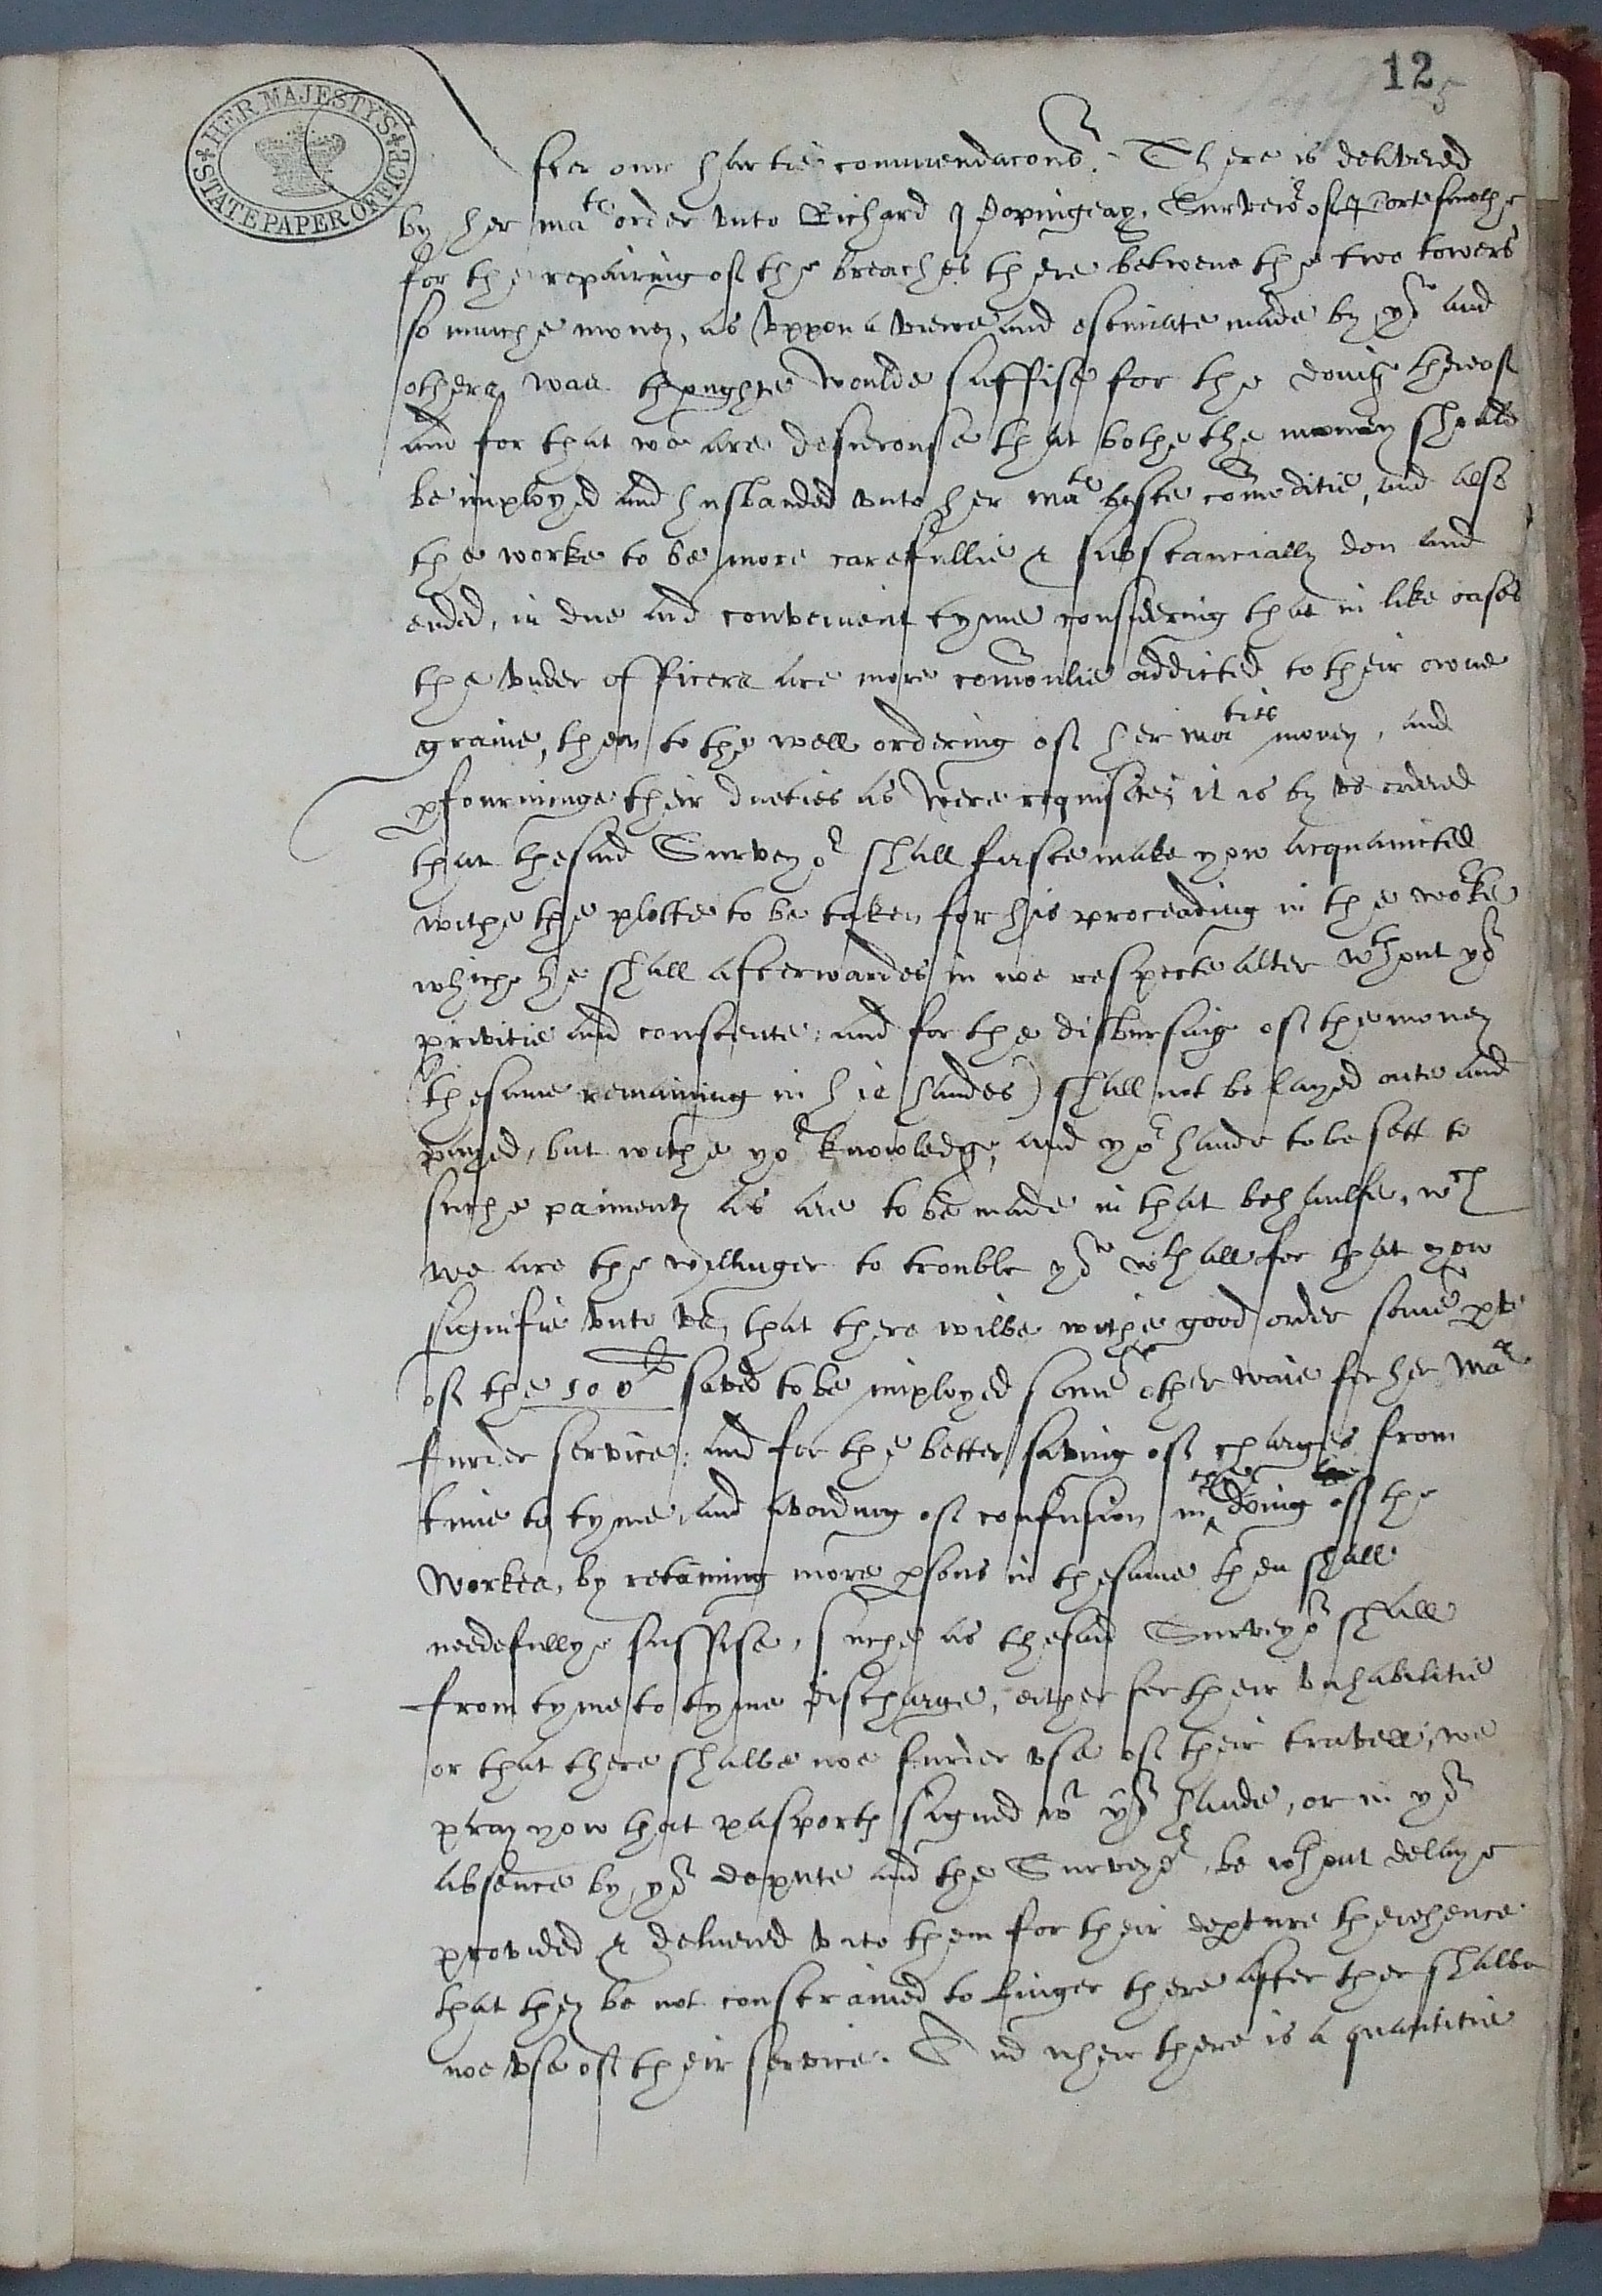 12
HER MAJESTY'S STATE PAPER OFFICE
fter our hartie commendacons. There is delivered
by her Ma^te order vnto Richard Popingeay, Surveior of Portesmothe
for the repairing of the breaches there betwene the two towers
so muche money, as vppon a viewe and estimate made by yo^u and
others was thoughte woulde suffise for the doing thereof
And for that we are desierouse that bothe the money shold
be imployed and husbanded vnto her Ma^te beste comoditie, and also
the worke to be more carefullie & substancially don and
ended, in due and convenient tyme considering that in like cases
the vnder officers are more comonlie addicted to their owne
graine, then to the well ordering of her Ma^ties money, and
pfourminge their dueties as were requisite; it is by vs ordered
that thesaid Surveyo^r shall firste make yow acquainted
withe the plotte to be taken for his proceading in the worke
whiche he shall afterwardes in noe respecte alter w^thout yo^r
privitie and consente: and for the disbursing of the money
(thesame remaining in his handes) shall not be layed oute and
payed, but withe yo^r knowledge, and yo^r hande to be sett to
suche paiments as are to be made in that behaulfe, w^ch
we are the willinger to trouble yo^u w^thall for that yow
signifie vnto vs, that there wilbe withe good order some pt
of the saved to be imployed some other waie for her Ma^te
furder service: and for the better saving of charges from
time to tyme, and avoiding of confusion in the doing of the
workes, by retaining more psons in thesame then shall
needefullye suffise, suche as thesaid Surveyo^r shall
from tyme to tyme discharge, either for their vnhabilitie
or that there shalbe noe furder vse of their travell, we
pray yow that pasports signed w^t yo^r hande, or in yo^r
absence by yo^r depute and the Surveyo^r, be w^thout delaye
provided & delivered vnto them for their depture therehence
that they be not constrained to linger there after ther shalbe
noe vse of their service. And wher there is a quantitie